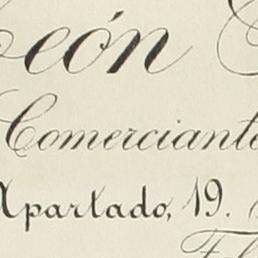 León
Comerciante
Apartado, 19.